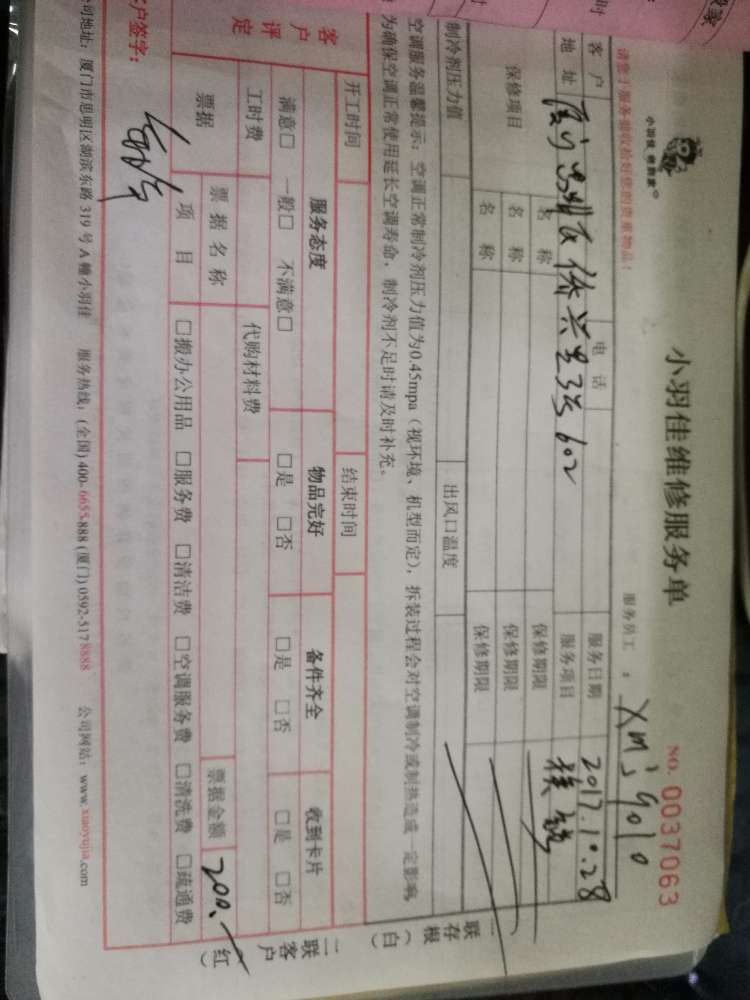 小羽佳维修服务单
NO. 0037063
小羽佳 管到家
服务员工：
请您于服务前收拾好您的贵重物品！
客户 电话 服务日期 2017.10.28
地址 3号602 服务项目
保修项目 名称 保修期限
名称 保修期限
名称 保修期限
制冷剂压力值 出风口温度
空调服务温馨提示：空调正常制冷剂压力值为0.45mpa（视环境、机型而定），拆装过程会对空调制冷或制热造成一定影响，
为确保空调正常使用延长空调寿命，制冷剂不足时请及时补充。
开工时间 结束时间
客户评定 服务态度 物品完好 备件齐全 收到卡片
满意□ 一般□ 不满意□ □是 □否 □是 □否 □是 □否
工时费 代购材料费
票据 票据名称 票据金额 200.
项目 □搬办公用品 □服务费 □清洁费 □空调服务费 □清洗费 □疏通费
户签字：
司地址：厦门市思明区湖滨东路319号A幢小羽佳 服务热线：(全国) 400-6655.888 (厦门) 0592-5178888 公司网站：www.xiaoyujia.com
一联存根（白）
二联客户（红）